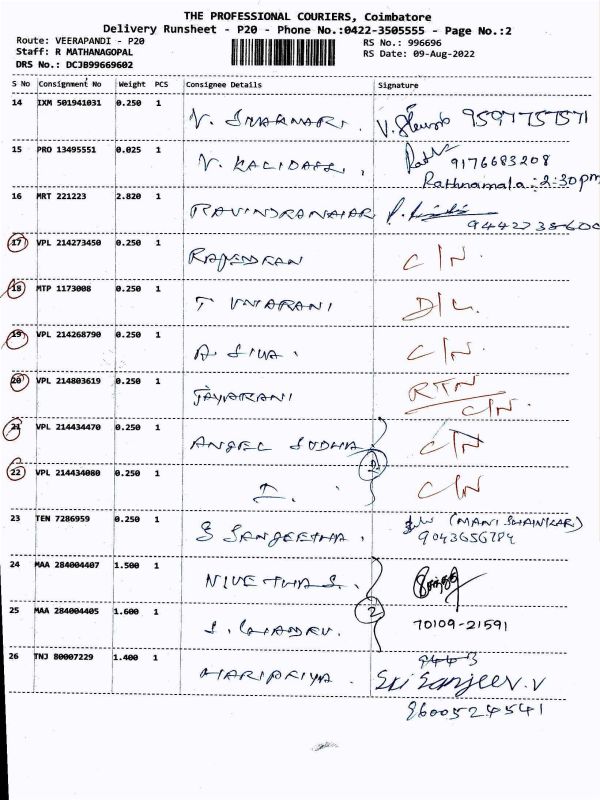 THE PROFESSIONAL COURIERS, Coimbatore
Delivery Runsheet - P20 - Phone No.:0422-3505555 - Page No.:2
Route: VEERAPANDI - P20
RS No.: 996696
Staff: R MATHANAGOPAL
RS Date: 09-Aug-2022
DRS No.: DCJB99669602
S No Consignment No Weight PCS Consignee Details Signature
14 IXM 501941031 0.250 1 V. 9597757571
15 PRO 13495551 0.025 1 V. KALIDASS. 9176683208
Rathnamala : 2:30pm
16 MRT 221223 2.820 1 RAVINDRANAIAR
9442738600
17 VPL 214273450 0.250 1 RAJENDRAN C/N.
18 MTP 1173008 0.250 1 T D/L.
19 VPL 214268790 0.250 1 A. SIVA. C/N.
20 VPL 214803619 0.250 1 JAYARANI RTN
C/N.
21 VPL 214434470 0.250 1 ANGEL SUDHA C/N
2
22 VPL 214434080 0.250 1 C/N
23 TEN 7286959 0.250 1 S SANGEETHA. (MANI SHANKAR)
9043656784
24 MAA 284004407 1.500 1 NIVETHA S.
2
25 MAA 284004405 1.600 1 70109-21591
26 TNJ 80007229 1.400 1 HARIPRIYA. 9443
Sri Sanjeev.V
9600524541